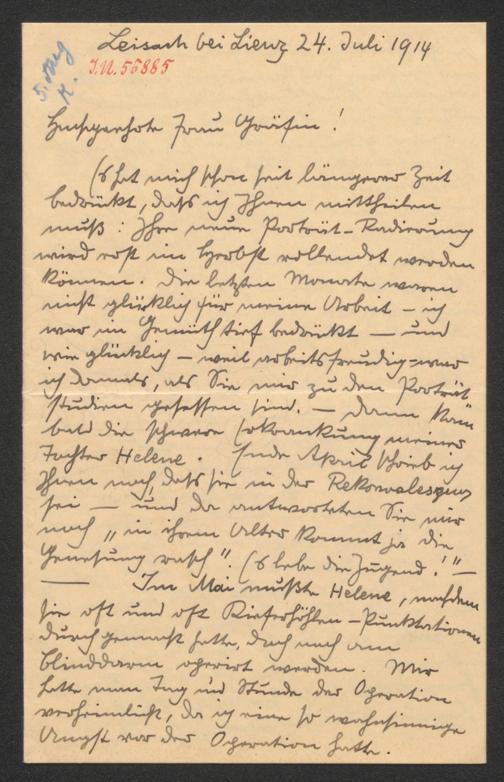 Leisach bei Lienz 24. Juli 1914
I.N. 55885
Hochverehrte Frau Gräfin!
Es hat mich schon seit längerer Zeit
bedrückt, daß ich Ihnen mittheilen
muß: Ihre neue Porträt-Radierung
wird erst im Herbst vollendet werden
können. Die letzten Monate waren
nicht glücklich für meine Arbeit – ich
war im Gemüth tief bedrückt – und
wie glücklich – weil arbeitsfreudig – war
ich damals, als Sie mir zu den Porträt
studien gesessen sind. – Dann kam
bald die schwere Erkrankung meiner
Tochter Helene. Ende April schrieb ich
Ihnen noch daß sie in der Rekonvaleszenz
sei – und da antworteten Sie mir
noch „in ihrem Alter kommt ja die
Genesung rasch". Es lebe die Jugend!" –
— Im Mai mußte Helene, nachdem
sie oft und oft Kieferhöhlen-Punktationen
durchgemacht hatte, doch noch am
Blinddarm operirt werden. Mir
hatte man Tag und Stunde der Operation
verheimlicht, da ich eine so wahnsinnige
Angst vor der Operation hatte.